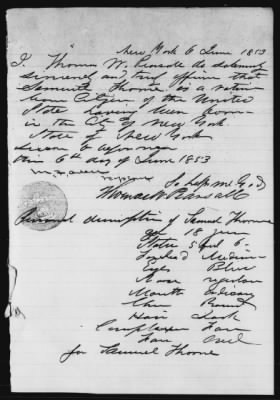 New York 6 June 1853
I Thomas W. do solemnly
sincerely and truly affirm that
Samuel Thorne is a native
born Citizen of the United
States having been born
in the City of New York
State of New York
sworn to before me
this 6th day of June 1853
So help me God
Thomas W
Personal description of Samuel Thorne
age 18 years
Stature 5 feet 6
Forehead Medium
Eyes Blue
Nose regular
Mouth ordinary
Chin Round
Hair Dark
Complexion Fair
Face Oval
for Samuel Thorne